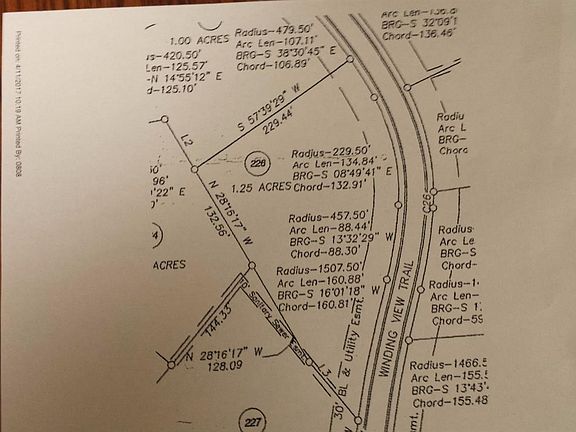 1.00 ACRES
Radius-479.50'
Arc Len-107.11'
BRG-S 38°30'45" E
Chord-106.89'
BRG-S 32°09'1
Chord-136.46'
is-420.50'
Len-125.57'
-N 14°55'12" E
d-125.10'
Printed on: 4/11/2017 10:19 AM Printed By: 0808
S 57°39'29" W
229.44'
L2
228
1.25 ACRES
Radius-229.50'
Arc Len-134.84'
BRG-S 08°49'41" E
Chord-132.91'
Radiu
Arc L
BRG-
Chord
96'
'22" E
N 28°16'17" W
132.56'
Radius-457.50'
Arc Len-88.44'
BRG-S 13°32'29" W
Chord-88.30'
C26
Radius-
Arc Le
BRG-S
Chord-
4
ACRES
Radius-1507.50'
Arc Len-160.88'
BRG-S 16°01'18" W
Chord-160.81'
Radius-1
Arc Len-
BRG-S 1
Chord-59
144.33'
Sanitary Sewer Esmt.
N 28°16'17" W
128.09
L3
30' BL & Utility Esmt.
WINDING VIEW TRAIL
Radius-1466.5
Arc Len-155.
BRG-S 13°43'
Chord-155.48
227